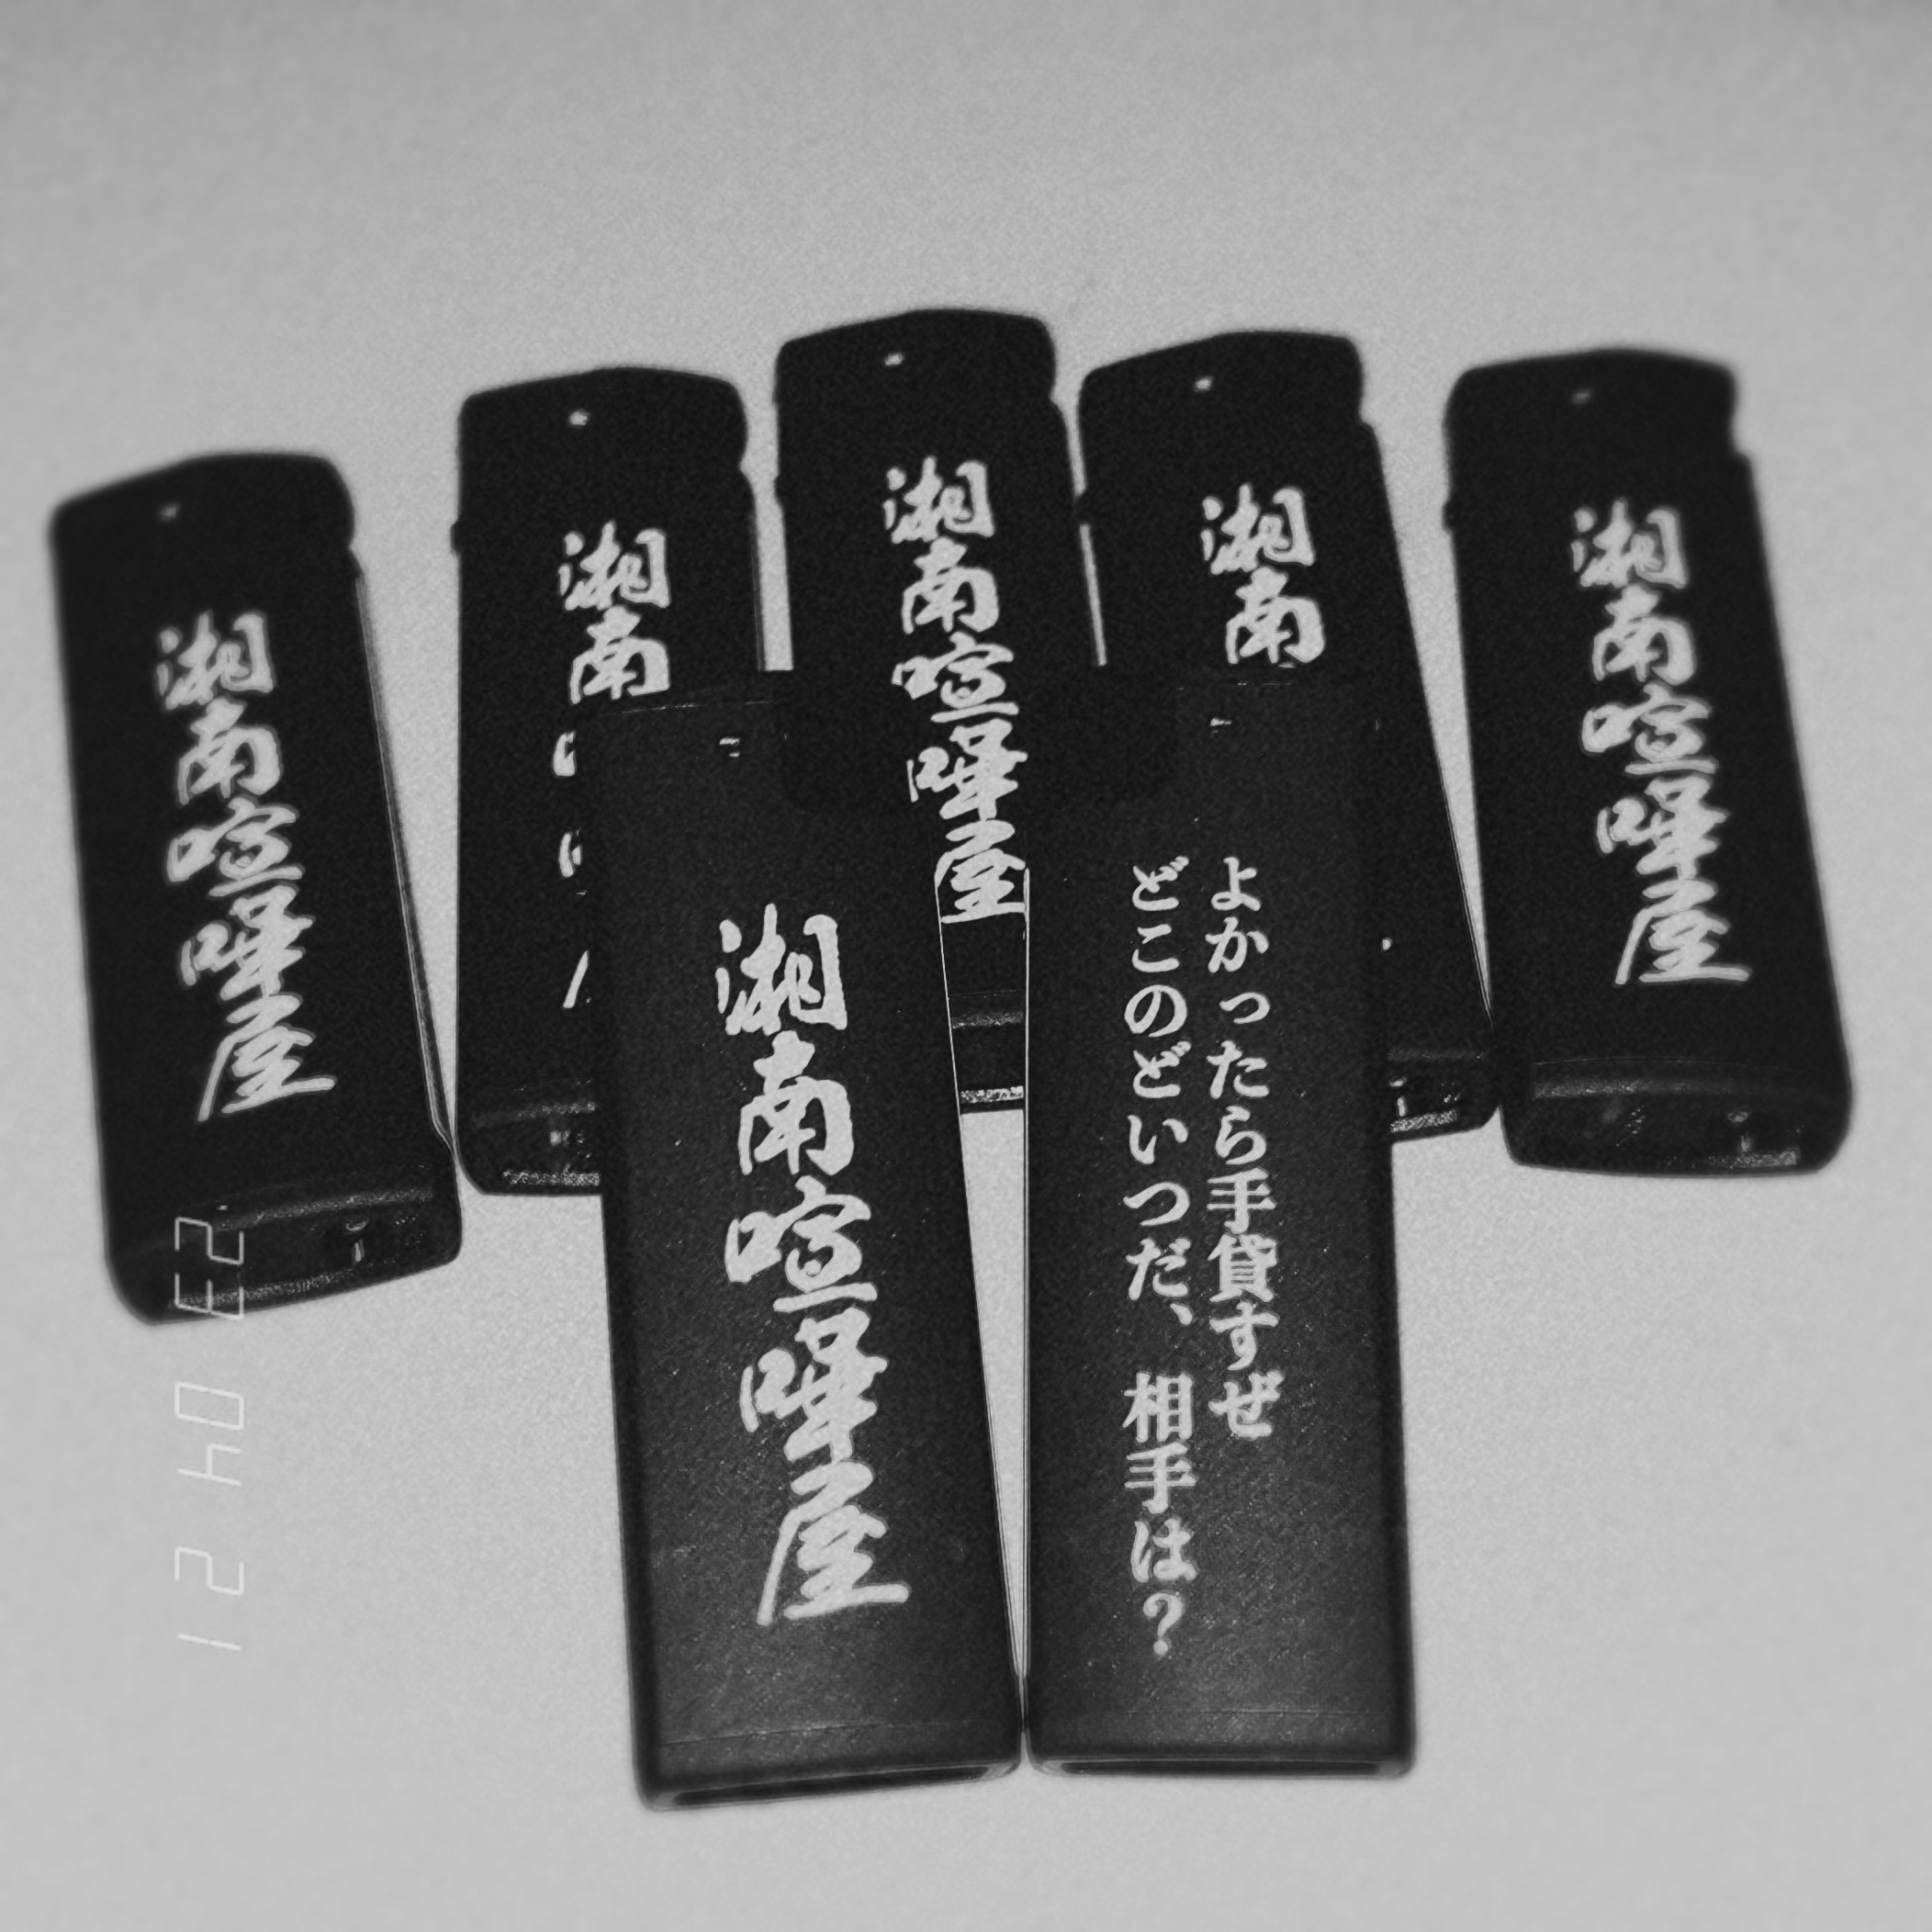 湘南喧嘩屋
湘南
湘南喧嘩屋
湘南
湘南喧嘩屋
湘南喧嘩屋
よかったら手貸すぜ
どこのどいつだ、相手は?
23 04 21